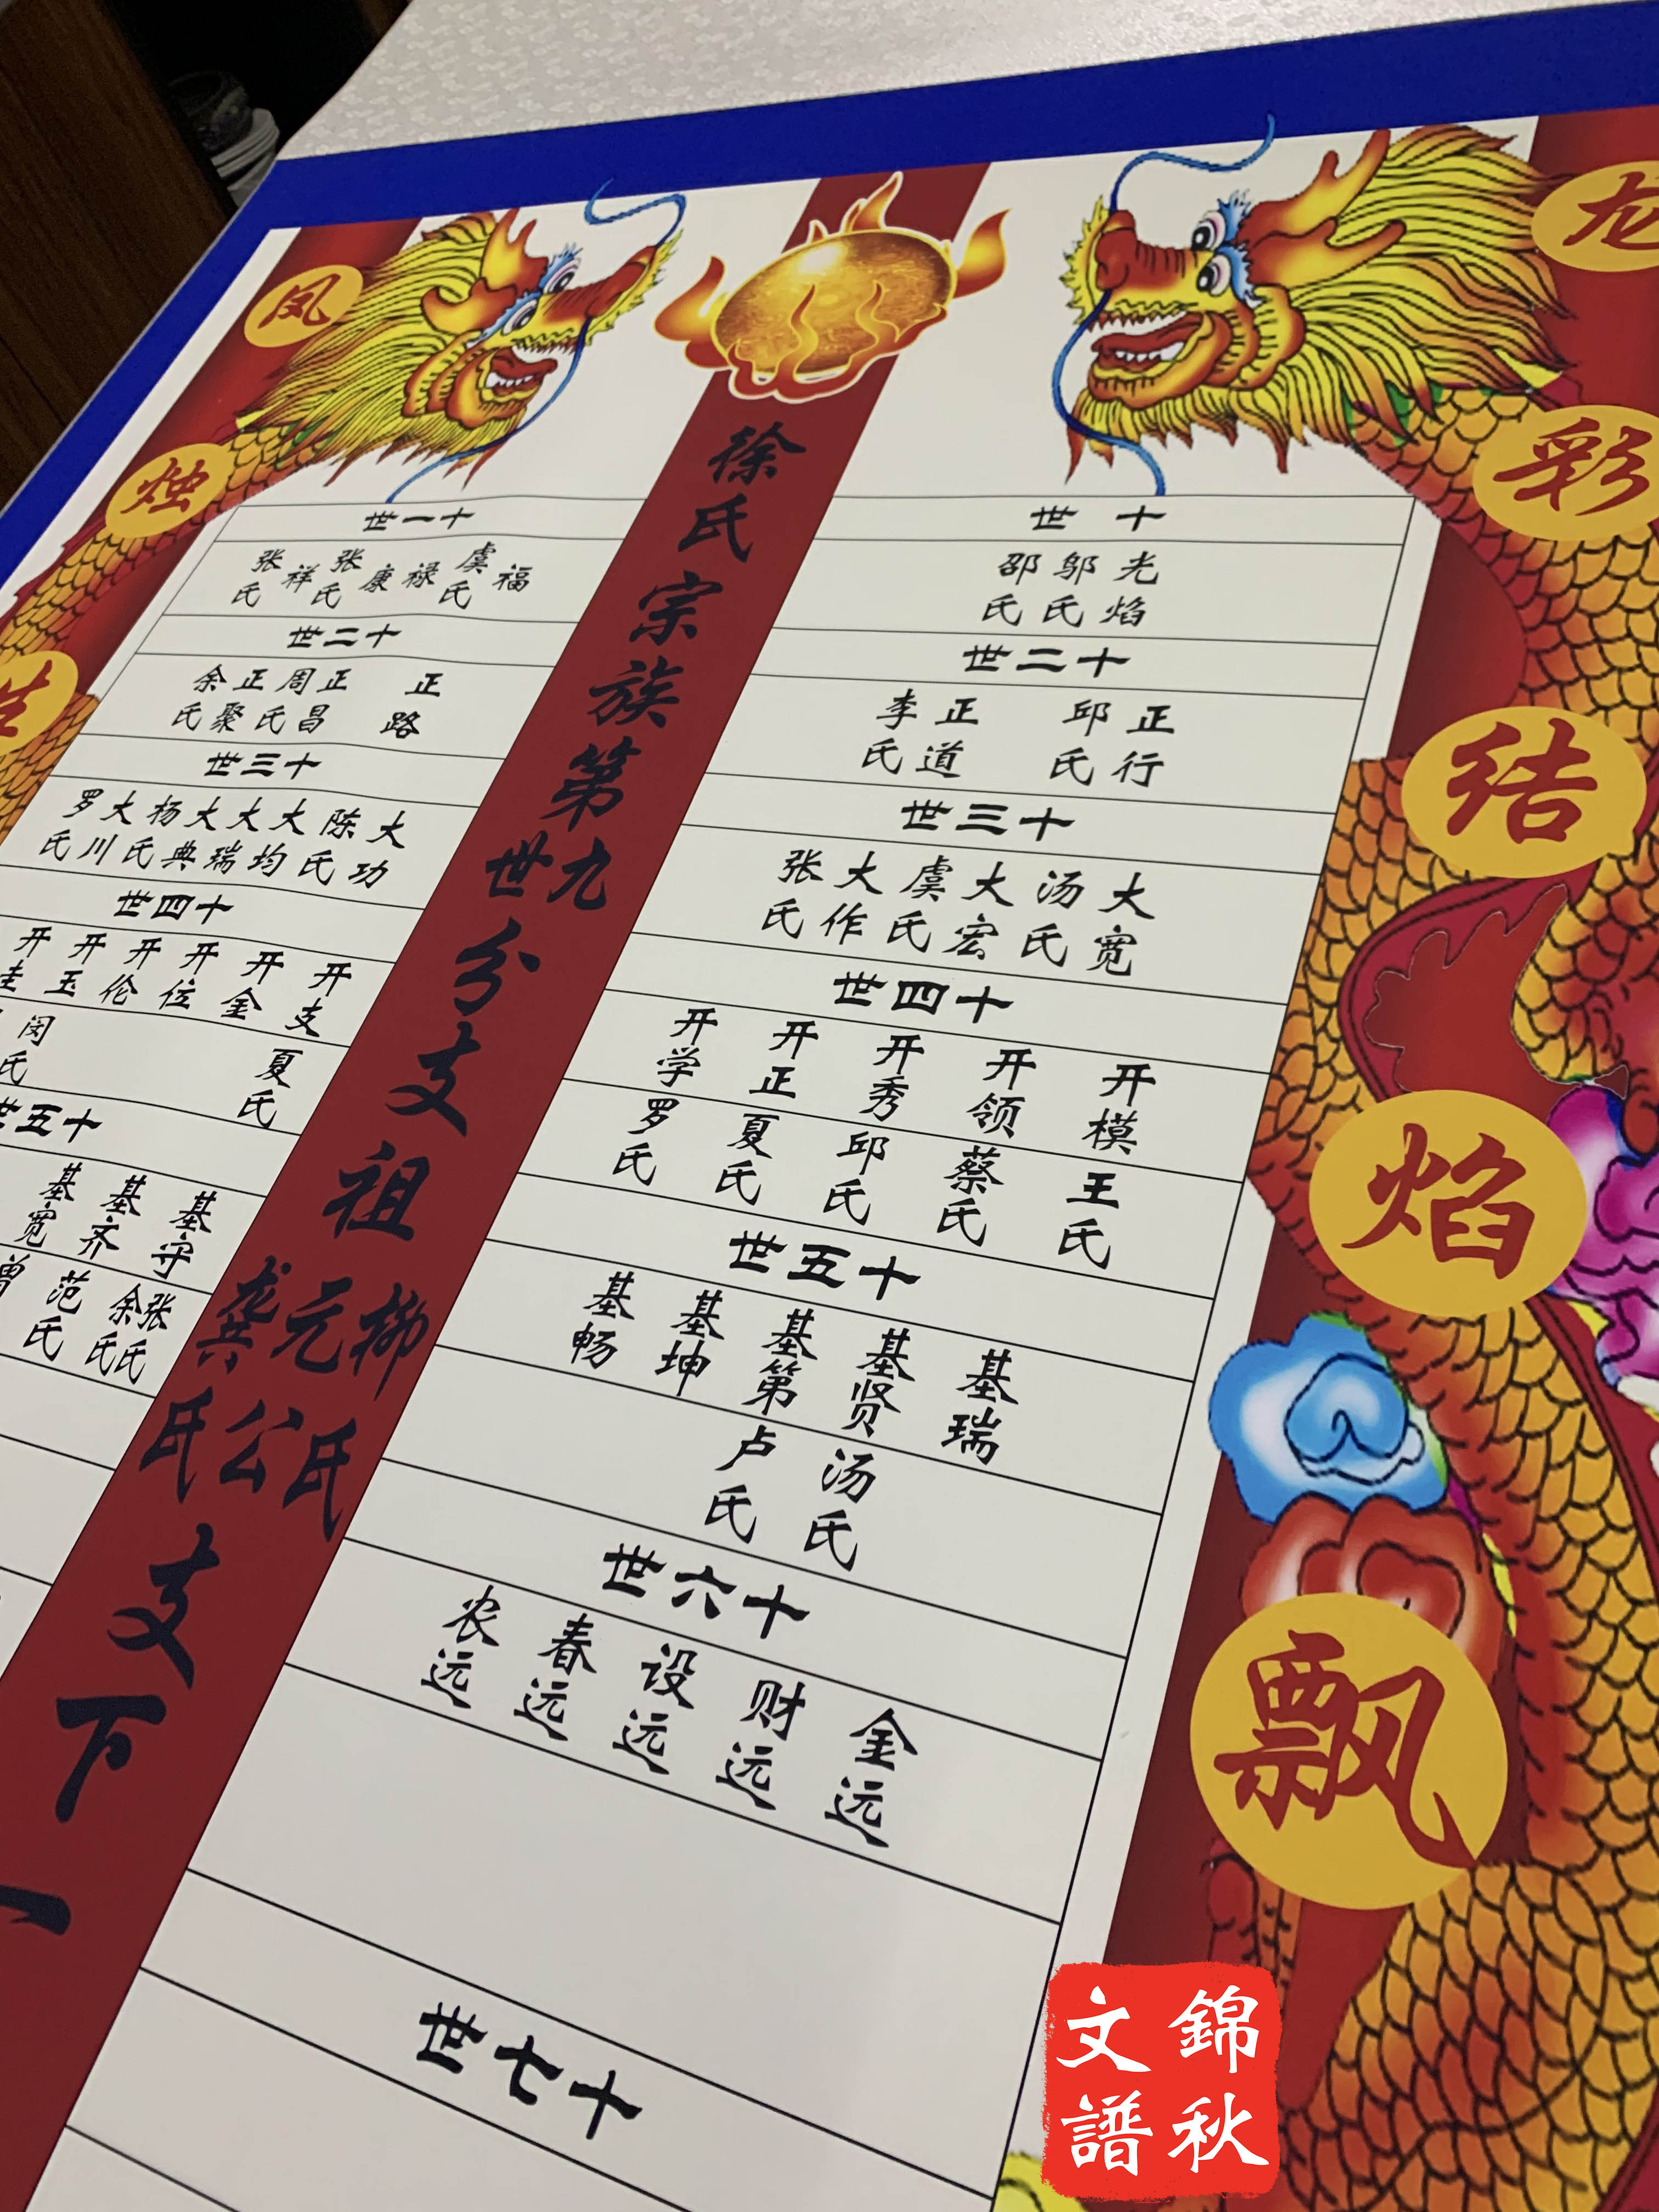 龙彩结焰飘
十世
光焰 邬氏 邵氏
十二世
正行 邱氏 正道 李氏
十三世
大宽 汤氏 大宏 虞氏 大作 张氏
十四世
开模 开领 开秀 开正 开学
王氏 蔡氏 邱氏 夏氏 罗氏
十五世
基瑞 基贤 基第 基坤 基畅
汤氏 卢氏
十六世
金远 财远 设远 春远 农远
十七世
徐氏宗族第九世分支祖
柳氏
元公
龚氏
支下一
十一世
福 虞氏 禄 康 张氏 祥 张氏
十二世
正路 正昌 周氏 正聚 余氏
十三世
大功 陈氏 大均 大瑞 大典 杨氏 大川 罗氏
十四世
开支 开金 开位 开伦 开玉 开
夏氏 闵氏
十五世
基守 基齐 基宽
张氏 余氏 范氏
凤烛生
錦秋
文譜